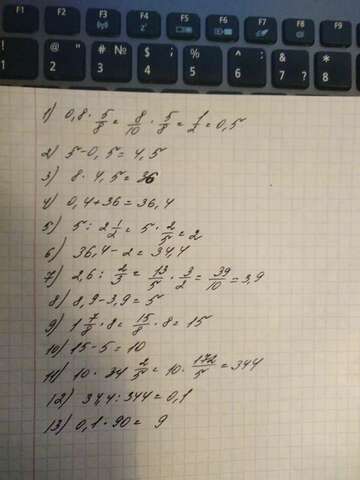 F1 F2 F3 F4 F5 F6 F7 F8
! 1 @ 2 # № 3 $ ; 4 % 5 ^ : 6 & ? 7 * 8
1) 0,8 · 5/8 = 8/10 · 5/8 = 1/2 = 0,5
2) 5-0,5 = 4,5
3) 8 · 4,5 = 36
4) 0,4+36 = 36,4
5) 5 : 2 1/2 = 5 · 2/5 = 2
6) 36,4-2 = 34,4
7) 2,6 : 2/3 = 13/5 · 3/2 = 39/10 = 3,9
8) 8,9-3,9 = 5
9) 1 7/8 · 8 = 15/8 · 8 = 15
10) 15-5 = 10
11) 10 · 34 2/5 = 10 · 172/5 = 344
12) 34,4 : 344 = 0,1
13) 0,1 · 90 = 9